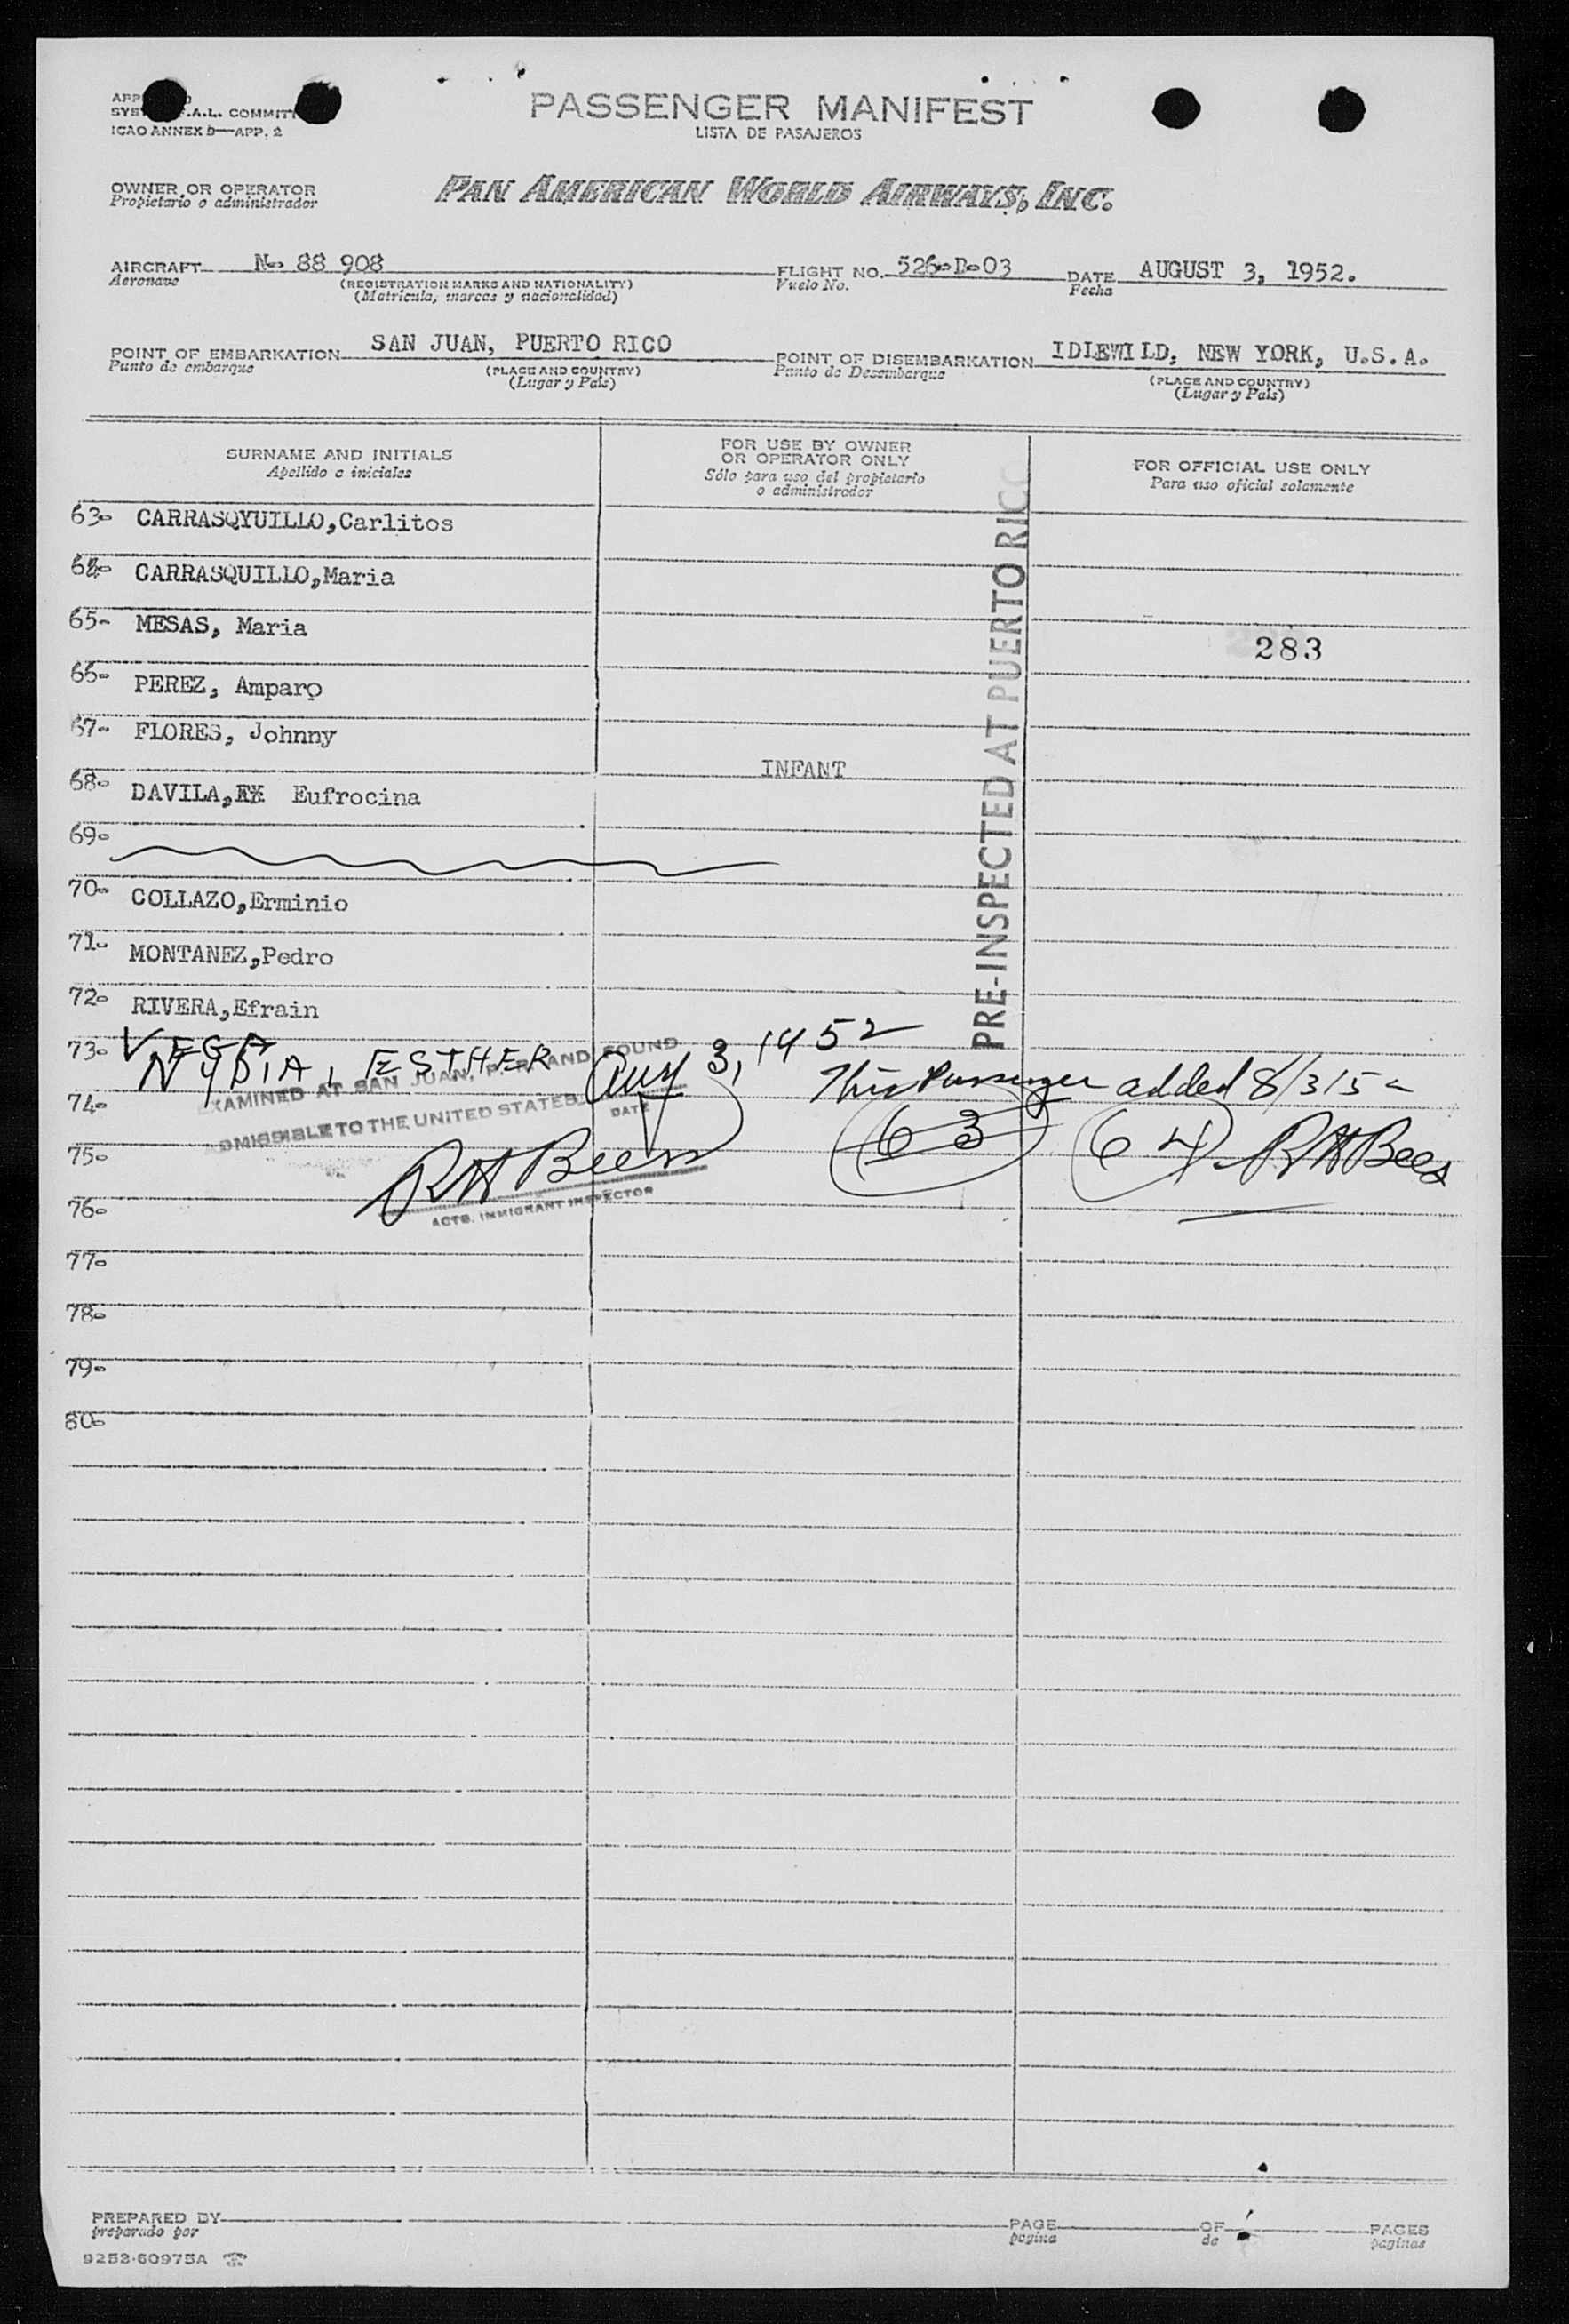 PASSENGER MANIFEST
LISTA DE PASAJEROS
ICAO ANNEX 9—APP. 2
OWNER OR OPERATOR
Propietario o administrador
PAN AMERICAN WORLD AIRWAYS, INC.
AIRCRAFT N- 88 908 FLIGHT NO. 526-D-03 DATE AUGUST 3, 1952.
Aeronave (REGISTRATION MARKS AND NATIONALITY) Vuelo No. Fecha
(Matricula, marcas y nacionalidad)
POINT OF EMBARKATION SAN JUAN, PUERTO RICO POINT OF DISEMBARKATION IDLEWILD, NEW YORK, U.S.A.
Punto de embarque (PLACE AND COUNTRY) Punto de Desembarque (PLACE AND COUNTRY)
(Lugar y País) (Lugar y País)
SURNAME AND INITIALS
Apellido e iniciales
FOR USE BY OWNER
OR OPERATOR ONLY
Sólo para uso del propietario
o administrador
FOR OFFICIAL USE ONLY
Para uso oficial solamente
63- CARRASQYUILLO,Carlitos
64- CARRASQUILLO,Maria
65- MESAS, Maria
283
66- PEREZ, Amparo
67- FLORES, Johnny
INFANT
68- DAVILA, Eufrocina
69-
70- COLLAZO,Erminio
71- MONTANEZ,Pedro
72- RIVERA,Efrain
PRE-INSPECTED AT PUERTO RICO
73- VEGA
NYDIA, ESTHER Aug 3, 1952
This Passenger added 8/3/52
74-
EXAMINED AT SAN JUAN, P. R. AND FOUND
ADMISSIBLE TO THE UNITED STATES
DATE
63 64 RH Bees
75-
RH Bees
ACTG. IMMIGRANT INSPECTOR
76-
77-
78-
79-
80-
PREPARED BY PAGE OF PAGES
preparado por pagina de paginas
9252-60975A